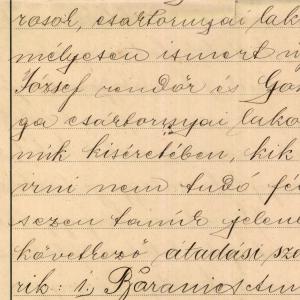 rosok, csáktornyai lak
mélyesen ismert
József rendőr és
ga csáktornyai lako
mik kiséretében, kik
irni nem tudó fé
sezen tanúk jelen
következő átadási szo
rik: 1., Baranics